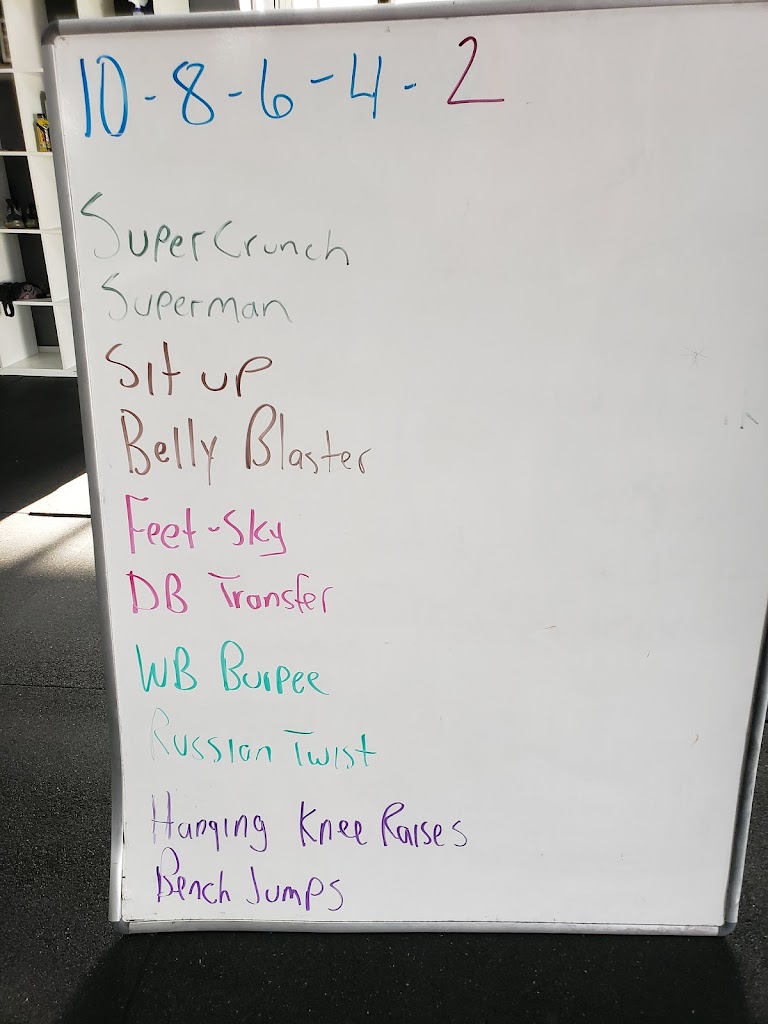 10-8-6-4-2
SuperCrunch
Superman
Sit up
Belly Blaster
Feet-Sky
DB Transfer
WB Burpee
Russian Twist
Hanging Knee Raises
Bench Jumps